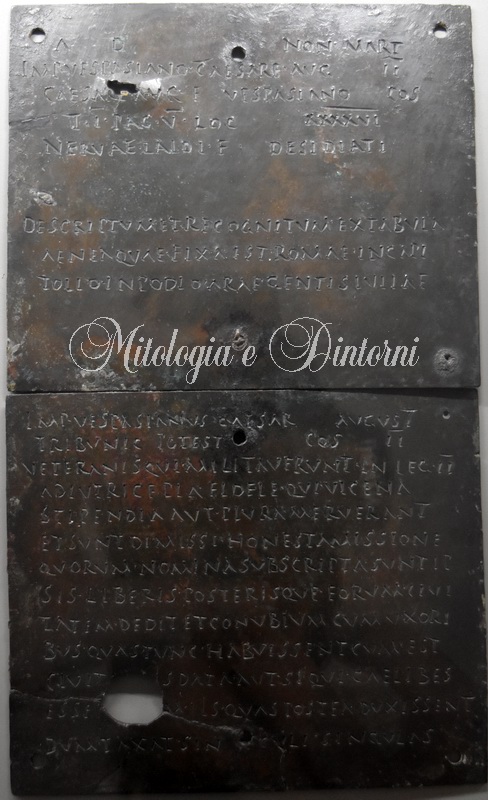 A D NON MART
IMP VESPASIANO CAESARE AVG II
CAESARE AVG F VESPASIANO COS
T I PAG V LOC XXXXVI
NERVAE LAIDI F DESIDIATI
DESCRIPTVM ET RECOGNITVM EX TABVLA
AENEA QVAE FIXA EST ROMAE IN CAPI
TOLIO IN PODIO ARAE GENTIS IVLIAE
Mitologia e Dintorni
IMP VESPASIANVS CAESAR AVGVST
TRIBVNIC POTEST COS II
VETERANIS QVI MILITAVERVNT IN LEG II
ADIVTRICE PIA FIDELE QVI VICENA
STIPENDIA AVT PLVRA MERVERANT
ET SVNT DIMISSI HONESTA MISSIONE
QVORVM NOMINA SVBSCRIPTA SVNT IP
SIS LIBERIS POSTERISQVE EORVM CIVI
TATEM DEDIT ET CONVBIVM CVM VXORI
BVS QVAS TVNC HABVISSENT CVM EST
CIVIT IS DATA AVT SI QVI CAELIBES
ESSE IIS QVAS POSTEA DVXISSENT
DVMTAXAT SIN VLI SINGVLAS